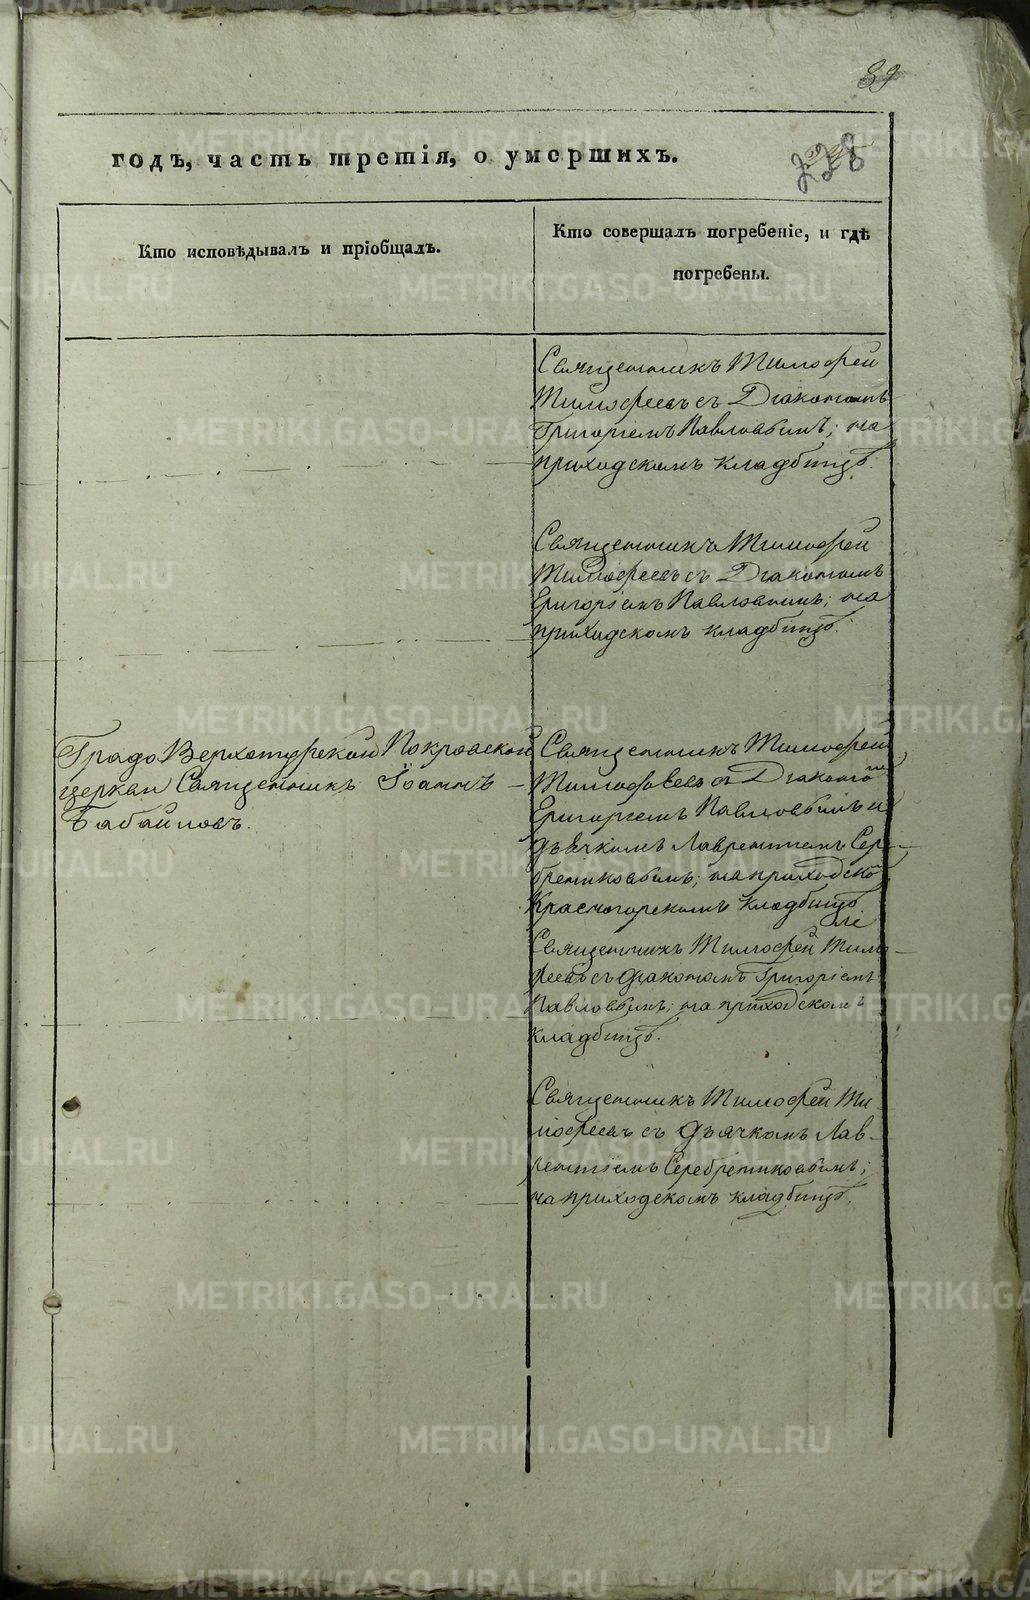 89
годъ, часть третія, о умершихъ.
238
Кто исповѣдывалъ и пріобщалъ.
Кто совершалъ погребеніе, и гдѣ
погребены.
Священникъ Тимофей
Тимофеевъ съ Діакономъ
Григоріемъ Павловымъ; на
приходскомъ кладбищѣ.
Священникъ Тимофей
Тимофеевъ съ Діакономъ
Григоріемъ Павловымъ; на
приходскомъ кладбищѣ.
Градо Верхотурской Покровской
церкви Священникъ Іоаннъ
Бабайловъ.
Священникъ Тимофей
Тимофѣевъ съ Діакономъ
Григоріемъ Павловымъ и
дьячкомъ Лаврентіемъ Сер-
бренниковымъ; на приходско
Красногорскомъ кладбищѣ
Священникъ Тимофей Тимо-
феевъ съ діакономъ Григоріемъ
Павловымъ; на приходскомъ
кладбищѣ.
Священникъ Тимофей Ти-
мофеевъ съ дьячкомъ Лав-
рентіемъ Серебренниковымъ;
на приходскомъ кладбищѣ.
METRIKI.GASO-URAL.RU